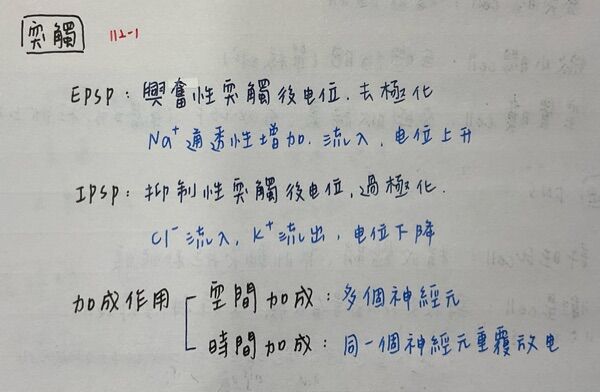 突觸 112-1
EPSP：興奮性突觸後电位，去極化
Na⁺ 通透性增加，流入，电位上升
IPSP：抑制性突觸後电位，過極化．
Cl⁻ 流入，K⁺ 流出，电位下降
加成作用 空間加成：多個神經元
時間加成：同一個神經元重覆放电